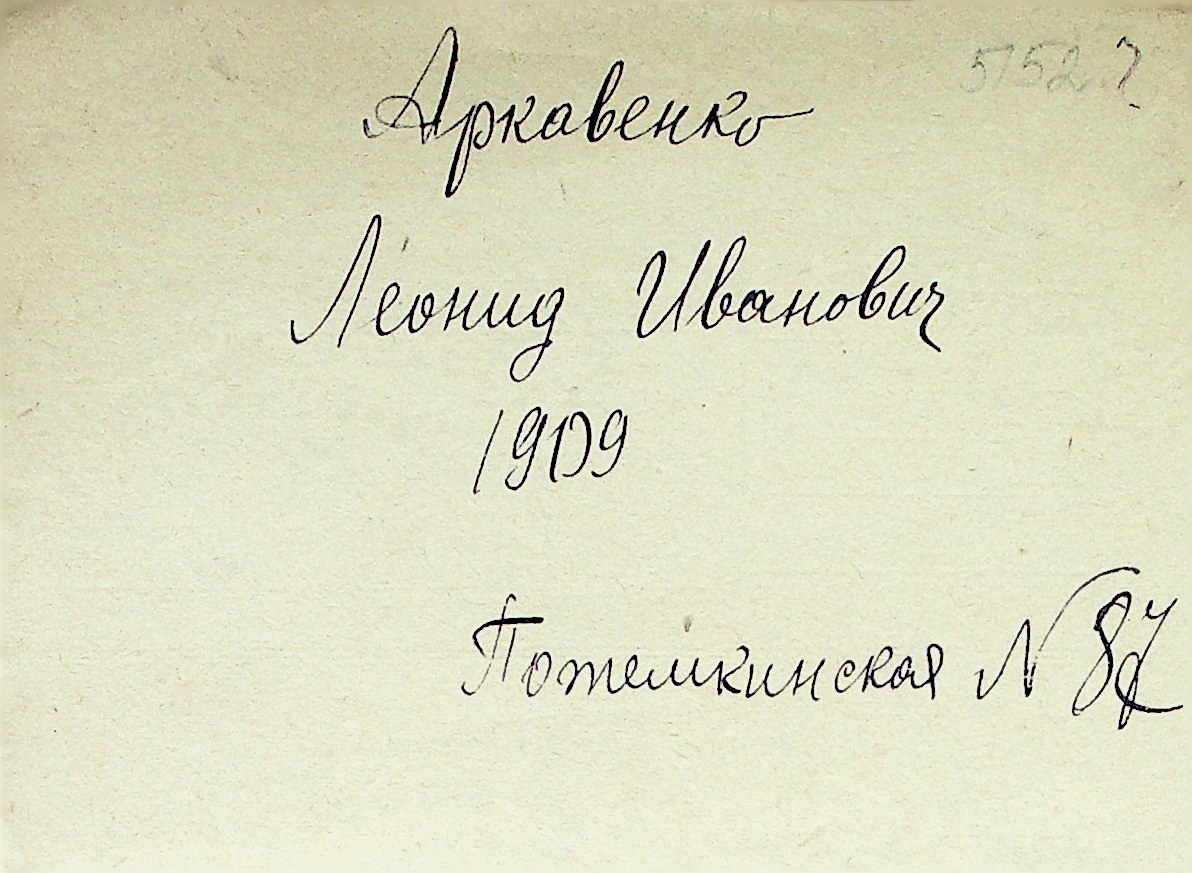 5152 7
Аркавенко
Леонид Иванович
1909
Потемкинская N 87